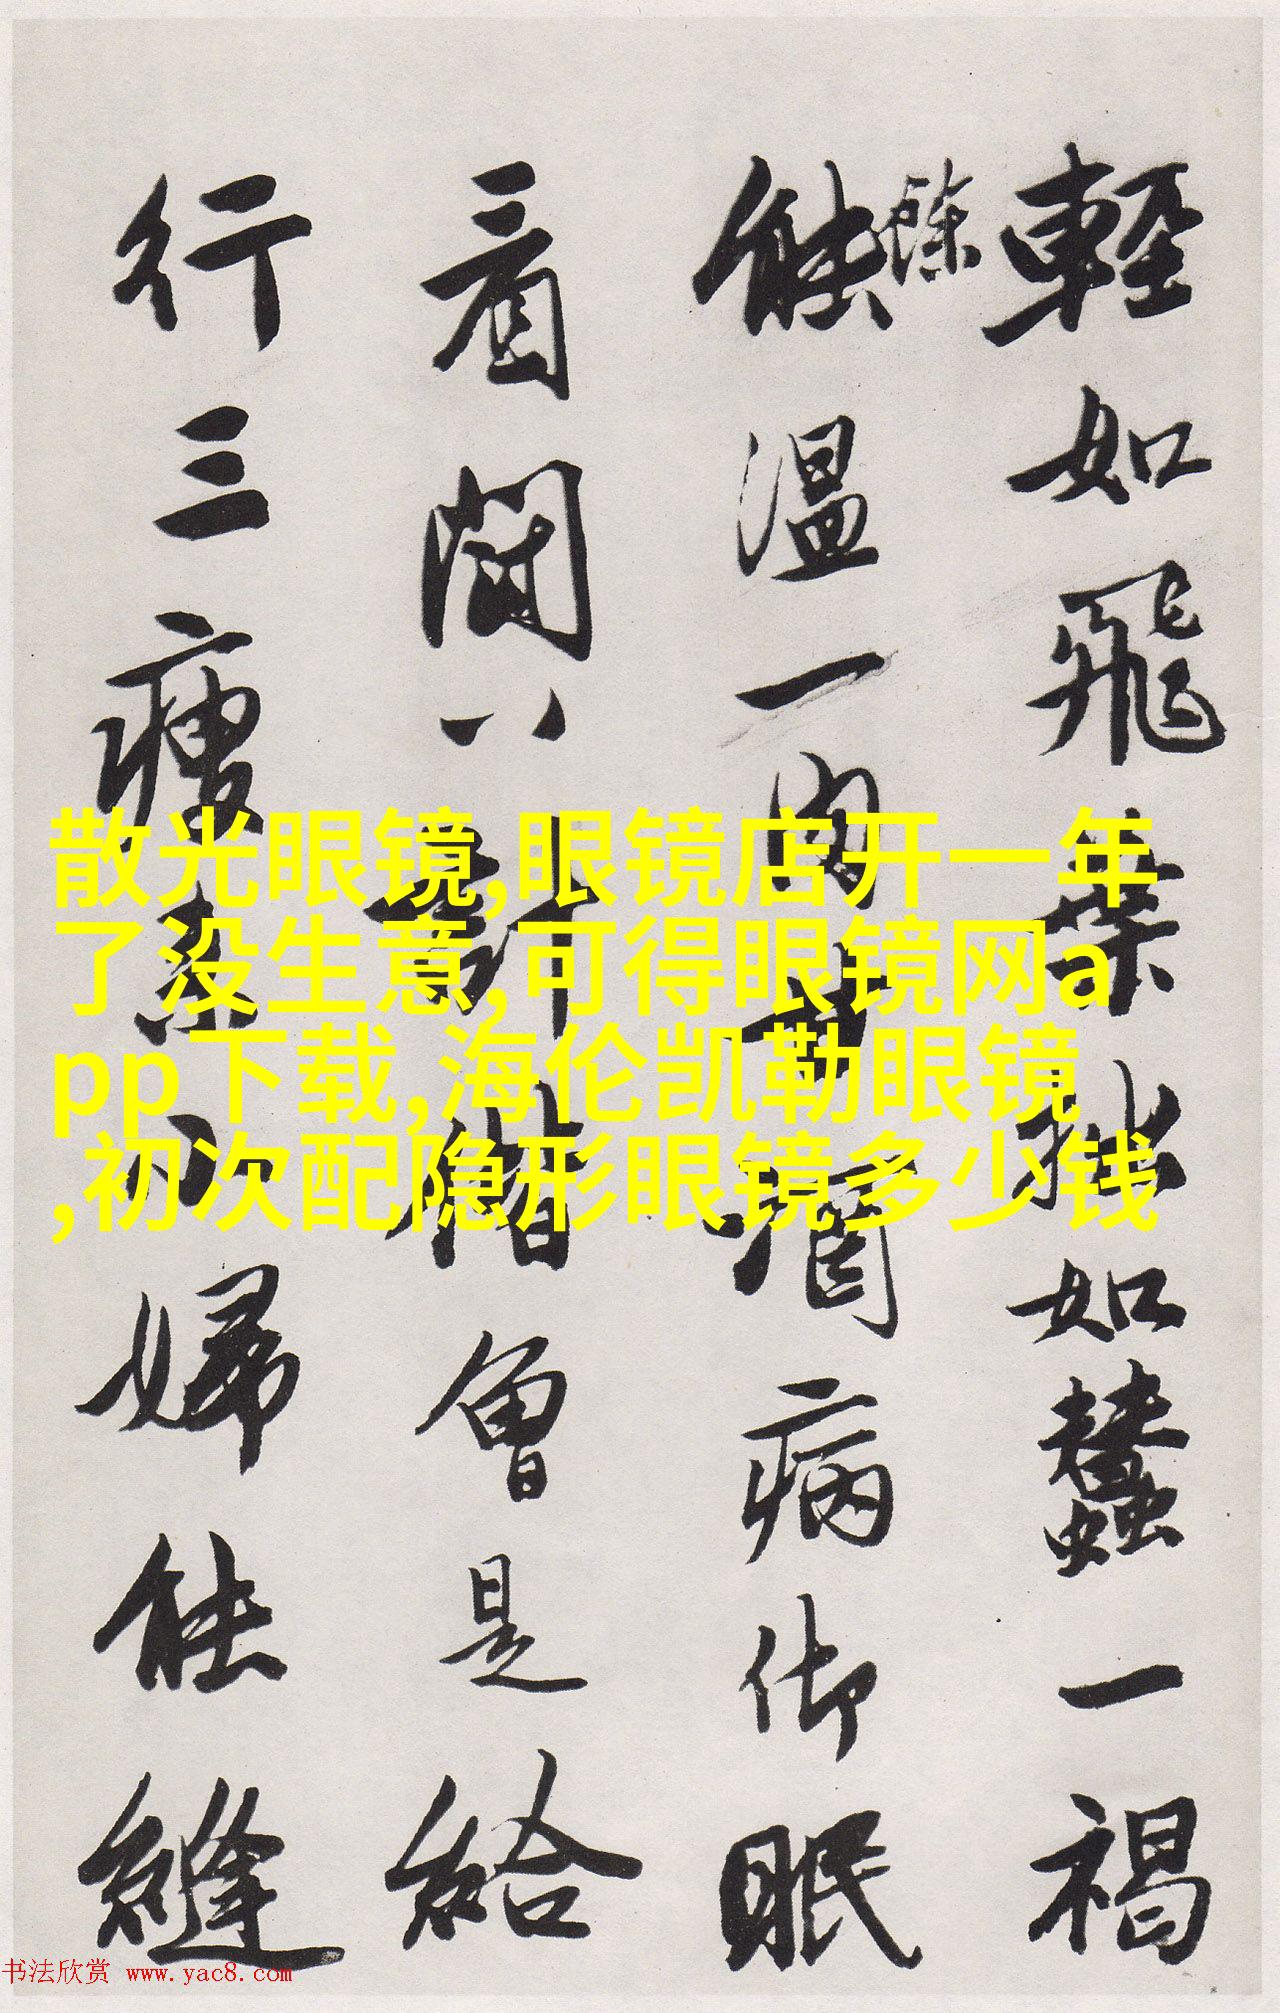 輕如飛葉拙如蠶一褐
餘
能溫一肉
病仰眠
看閱八計
偕會是給
行三瘦
婦能縫
散光眼镜,眼镜店开一年
了没生意,可得眼镜网a
pp下载,海伦凯勒眼镜
,初次配隐形眼镜多少钱
书法欣赏 www.yac8.com